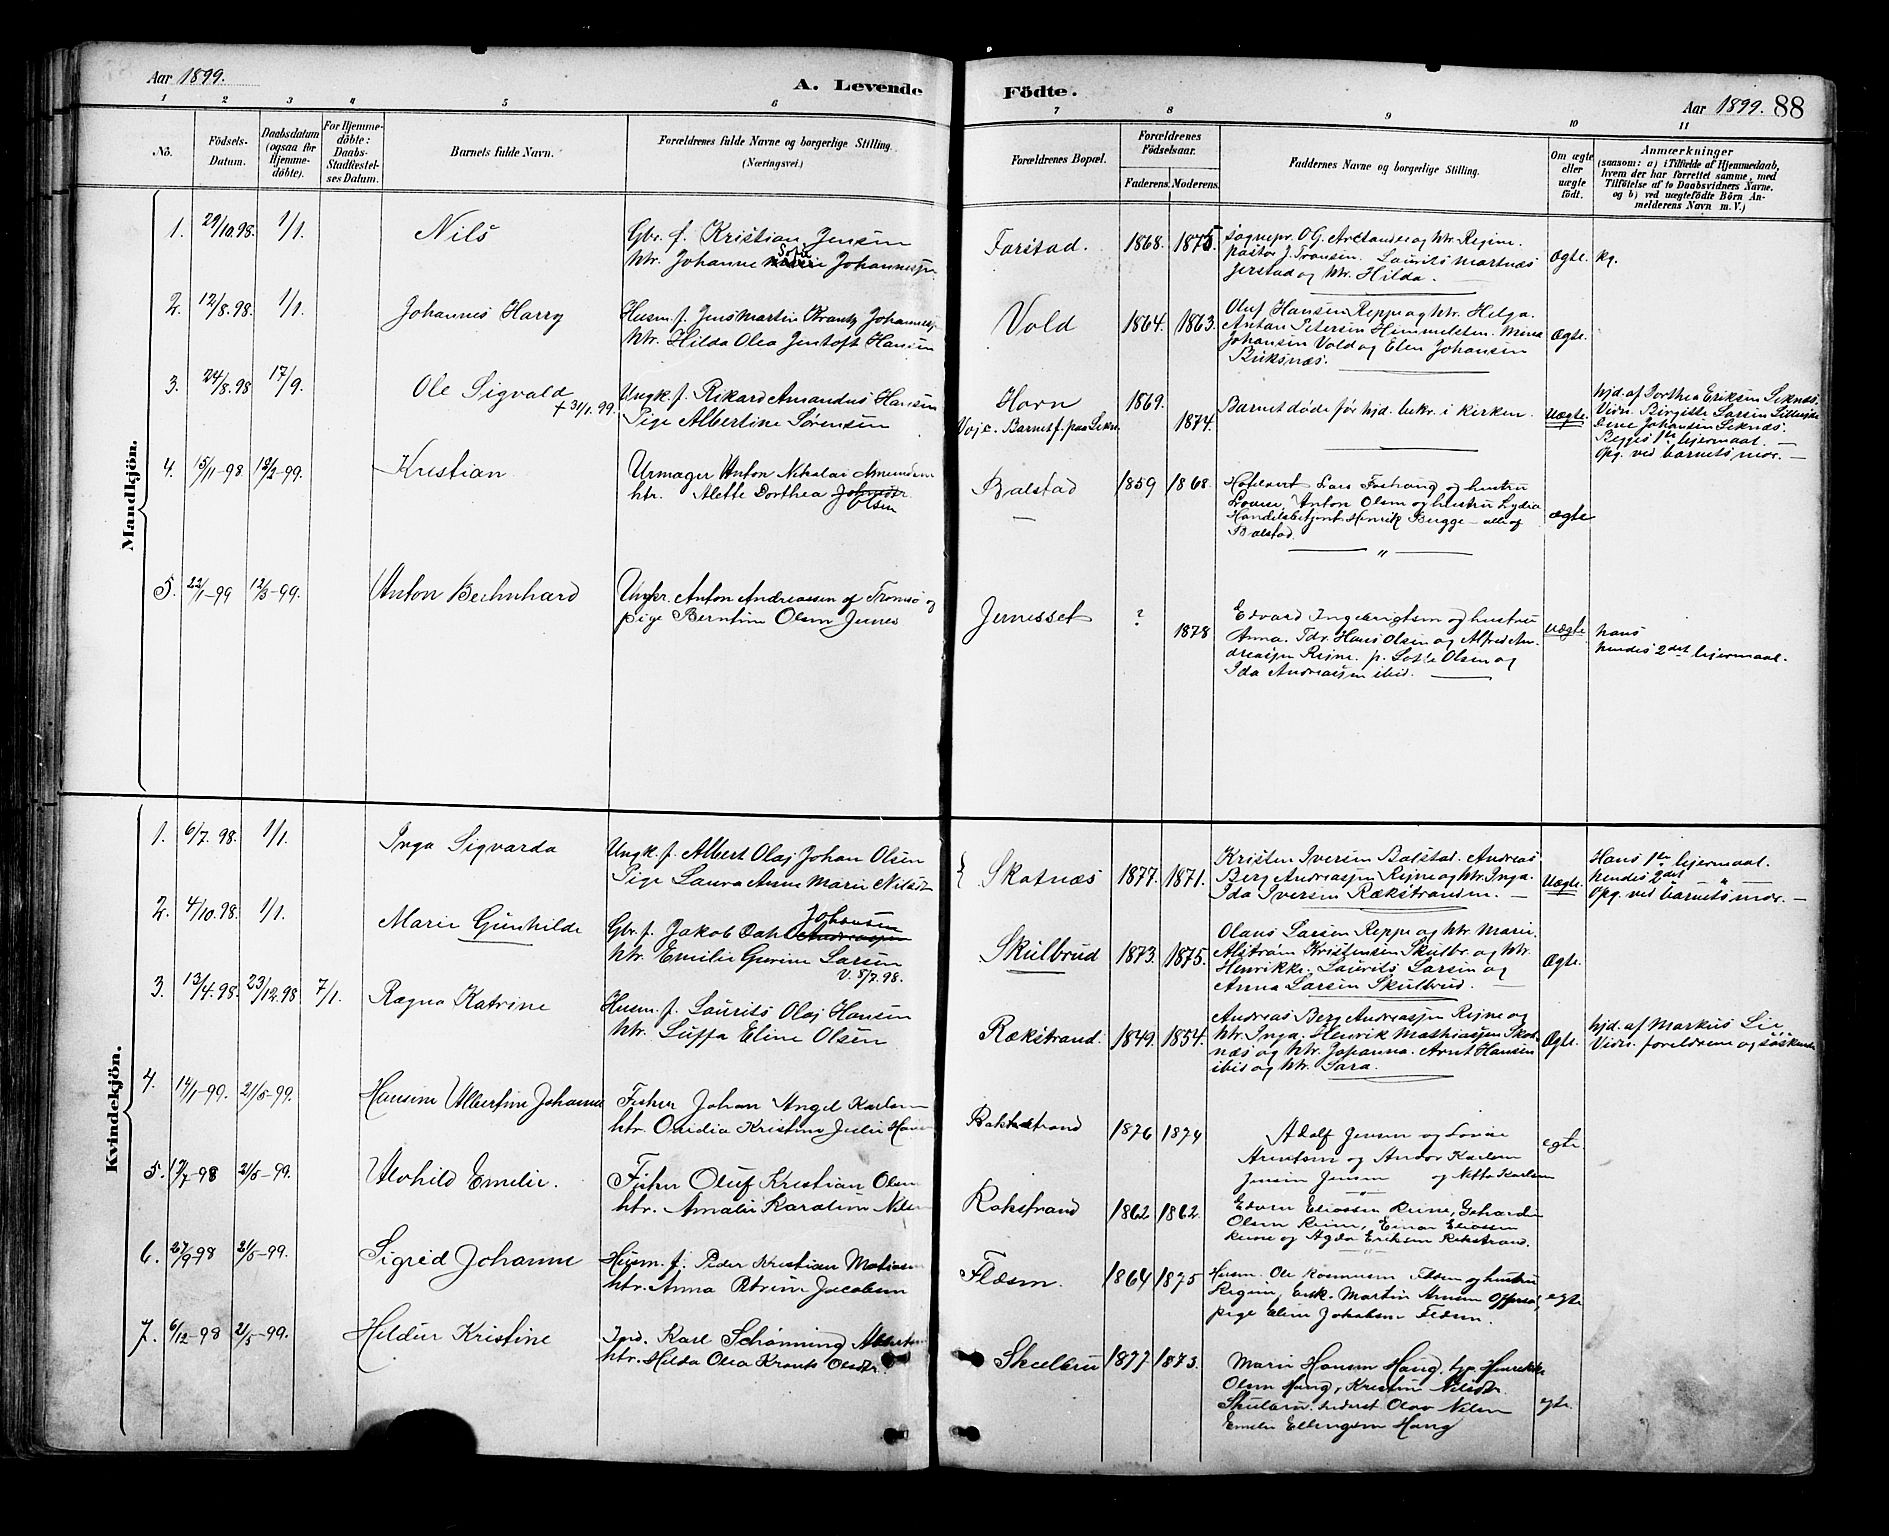 Aar 1899.
A. Levende
Födte.
Aar 1899. 88
1 2 3 4 5 6 7 8 9 10 11
No.
Födsels-
Datum.
Daabsdatum
(ogsaa for
Hjemme-
döbte).
For Hjemme-
döbte:
Daabs-
Stadfæstel-
ses Datum.
Barnets fulde Navn.
Forældrenes fulde Navne og borgerlige Stilling
(Næringsvei.)
Forældrenes Bopæl.
Forældrenes
Födselsaar.
Faderens. Moderens.
Faddernes Navne og borgerlige Stilling.
Om ægte
eller
uægte
födt.
Anmærkninger
(saasom: a) i Tilfælde af Hjemmedaab,
hvem der har forrettet samme, med
Tilföielse af to Daabsvidners Navne,
og b) ved uægtefödte Börn An-
melderens Navn m. V.)
Mandkjön.
1. 29/10.98. 1/1. Nils
Gbr. f. Kristian Jensen
htr. Johanne Sofie Johannesen
Farstad. 1868. 1875
Sognepr. O.G. og htr. Regine.
pastor J. Fransen. Laurits Martnæs
Jerstad og htr. Hilda.
Ægte. kg.
2. 12/8.98. 1/1. Johannes Harry
Husm. f. Jens Martin Krantz
htr. Hilda Olea Jentoft Hansen
Vold 1864. 1863.
Oluf Hansen Reppe og htr. Helga.
Antan Petersen Himmelsten. Mina
Johansen Vold og Elen Johansen
Buksnæs.
Ægte.
3. 24/8.98 17/9. Ole Sigvald
+ 31/1.99.
Ungk. f. Rikard Amandus Hansen
Pige Albertine Sørensen
Horn 1869.
Barnets f. paa 1874.
Barnet døde før hjd. bekr. i kirken.
Uægte.
hjd. af Dorthea Eriksen Seknæs.
Vidn. Birgitte Larsen
Johansen Seknæs.
Begges 1ste lejermaal. —
Opg. ved barnets mor. —
4. 15/1-98 12/2-99. Kristian
Urmager Anton Nikolai Amundsen
htr. Alette Dorthea
Olsen
Balstad 1859 1868.
Lars og hustru
Lovise, Anton Olsen og hustru Lydia
Handelsbetjent Henrik Bugge — alle af
Balstad.
ægte
5. 22/1-99 12/3-99. Anton Bernhard
Ungkr. Anton Andreassen af Tromsø og
pige Berntine Olsen Jernes
Jernesset ? 1878
Edvard Ingebrigtsen og hustru
Anna. Hans Olsen og Alfred An-
dreasen Reine. p. Olsen og
Ida Andreassen ibid.
uægte
hans
hendes 2det lejermaal.
Kvindekjön.
1. 6/7.98. 1/1. Inga Sigvarda
Ungk. f. Albert Olaj Johan Olsen
Pige Laura Anne Marie Nilsdtr
Skotnæs 1877. 1871.
Kristen Iversen Balstad. Andreas
Berg Andreasen Rejne og htr. Inga.
Ida Iversen Rækstranden. —
Uægte.
Hans 1ste lejermaal.
hendes 2det "
Opg. ved barnets mor. —
2. 4/10.98. 1/1. Marie Gunhilde
Johansen
Gbr. f. Jakob Dahl Andreasen
htr. Emilie Gurine Larsen
V. 8/7.98.
Skulbrud 1873. 1875.
Olaus Larsen Reppe og htr. Marie.
Kristensen Skulbr. og htr.
Henrikke. Laurits Larsen og
Anna Larsen Skulbrud.
Ægte.
3. 13/4.98. 23/12.98 7/1. Ragna Katrine
Husm. f. Laurits Olaj Hansen
htr. Luffa Eline Olsen
Rækstrand. 1849. 1854.
Andreas Berg Andreasen Rejne og
htr. Inga. Henrik Mathiasen Skot-
næs og htr. Johanna. Arnt Hansen
ibid og htr. Sara.
Ægte.
hjd. af Markus Lie
Vidn. foreldrene og søskende
4. 14/1-99. 21/5-99. Hansine Albertine Johanna
Fisker Johan Angel Karlsen
htr. Ovidia Kristine Julie
1876 1874
Adolf Jensen og Lovise
Arntsen og Andor Karlsen
Jensen og Netta Karlsen
egte
5. 17/7-98 21/5-99. Alvhild Emelie.
Fisker Oluf Kristian Olsen
htr. Amalie Karoline Nilsen
Rakstrand 1862 1862.
Edvin Eliassen Reine, Gehard
Olsen Reine, Einar Eliassen
Reine og Agda Eriksen Rekstrand.
6. 27/9-98 21/5-99. Sigrid Johanne
Husm. f. Peder Kristian
htr. Anna Petrine Jacobsen
Flæsen. 1864 1875
Husm. Ole Rasmussen og hustru
Regine, Martin
pige Eline Johansen
egte
7. 6/12-98 21/5-99. Hildur Kristine
Karl Schønning
htr. Hilda Olea Krantz
Skulbru 1877 1873.
Marie Hansen Haug, Henrikke
Olsen Haug, Kristine Nilsdtr
Skulbru. Olav Nilsen
Emelie Ellingsen Haug
egte.